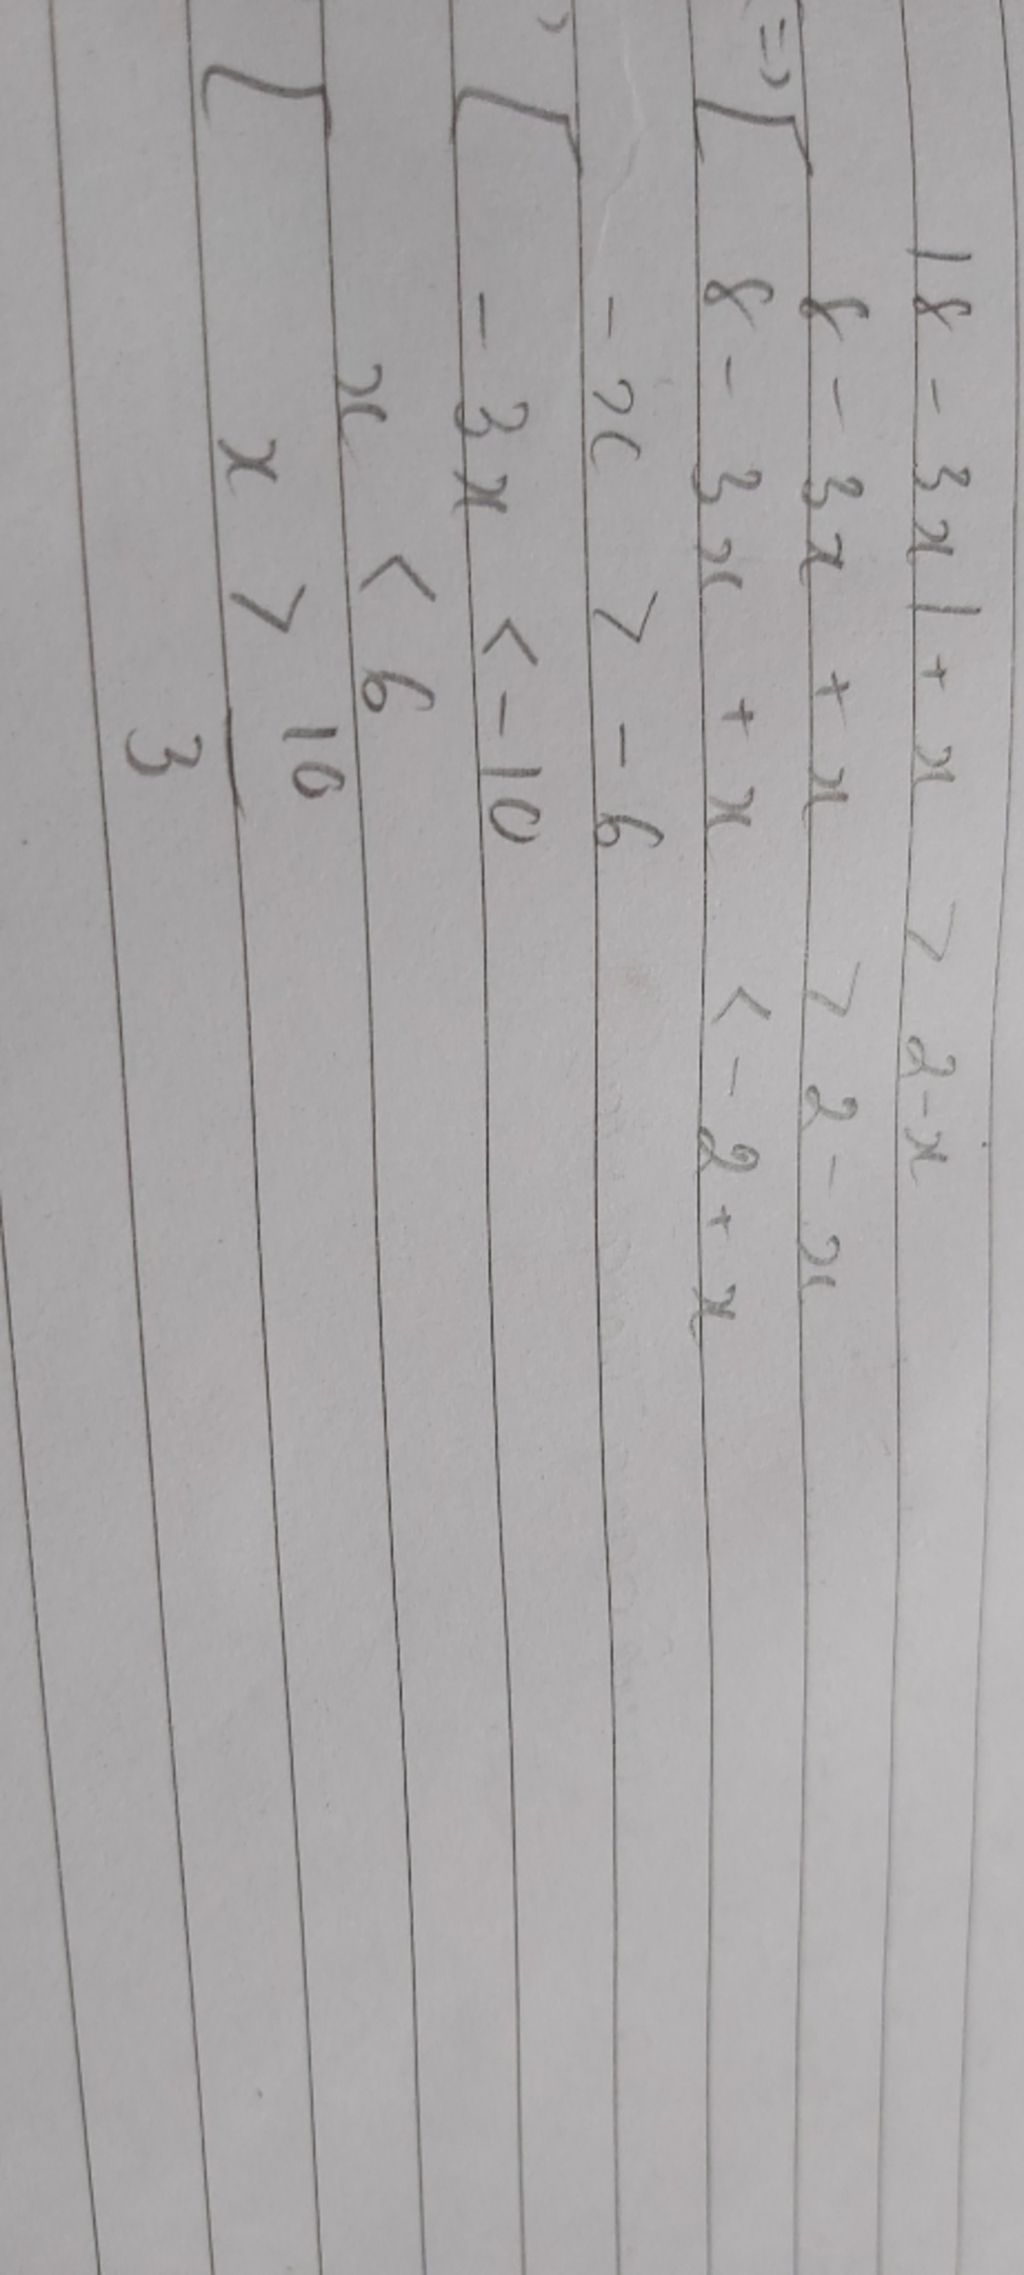 |8 - 3x| + x > 2 - x
=> [ 8 - 3x + x > 2 - x
8 - 3x + x < - 2 + x
[ - x > - 6
- 3x < - 10
[ x < 6
x > 10/3